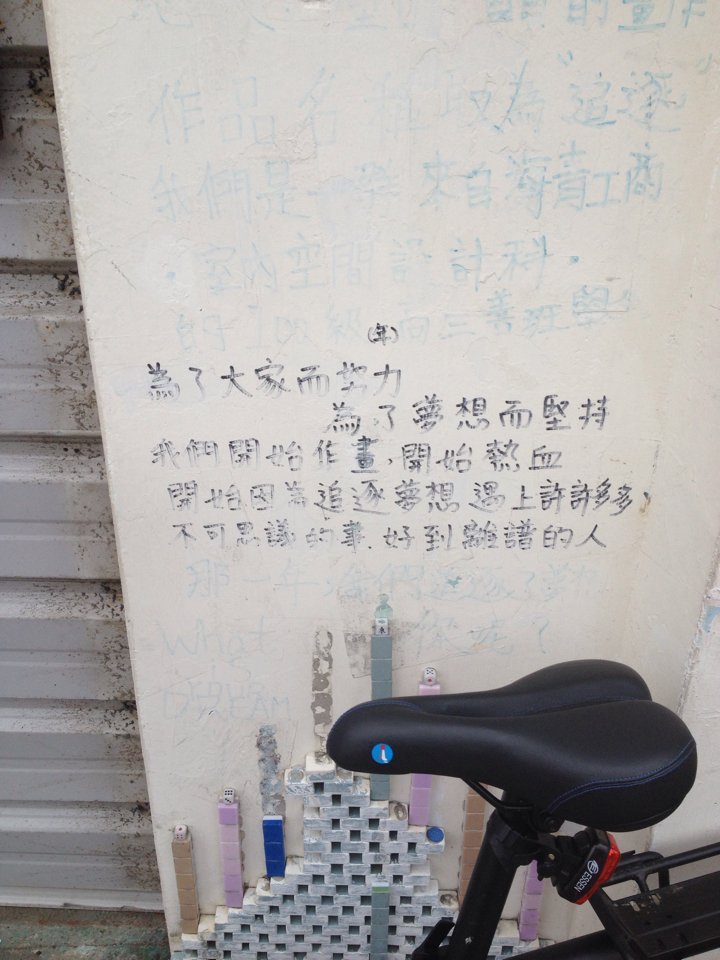 自與的畫作
作品名種取為"追逐"
我們是一群來自海青工商
・室內空間設計科・
的 級高三善班學
(年)
為了大家而努力
為了夢想而堅持
我們開始作畫,開始熱血
開始因為追逐夢想遇上許許多多、
不可思議的事、好到離譜的人
那一年,我們追逐了夢想
What 你呢?
DREAM
ESSEN